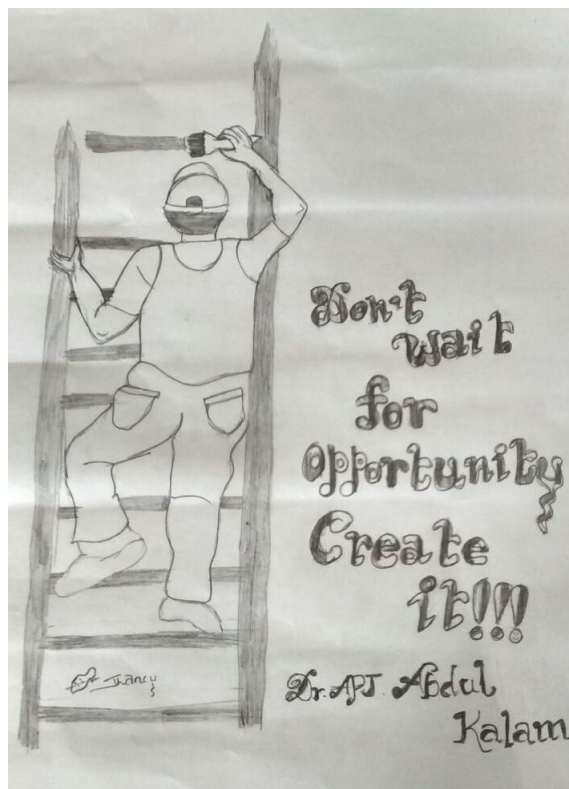 Don't
wait
for
Opportunity
Create
it!!!
Dr. APJ. Abdul
Kalam
Jhancy